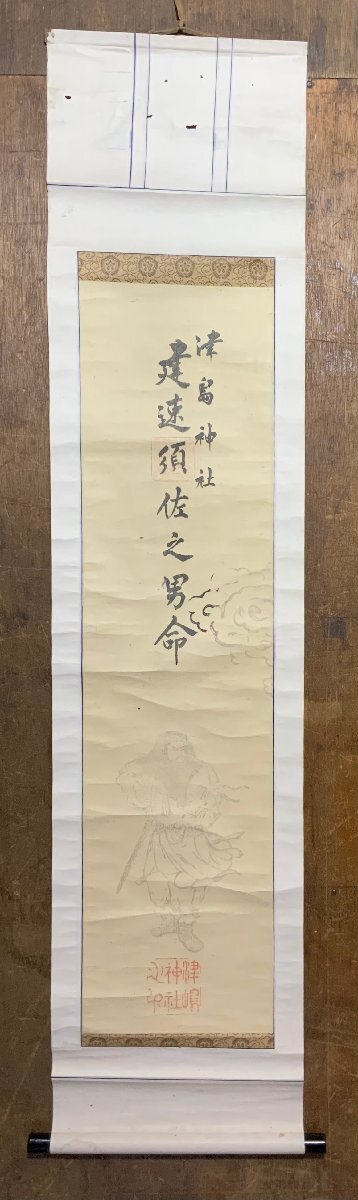 津島神社
建速須佐之男命
津嶼
神社
之印